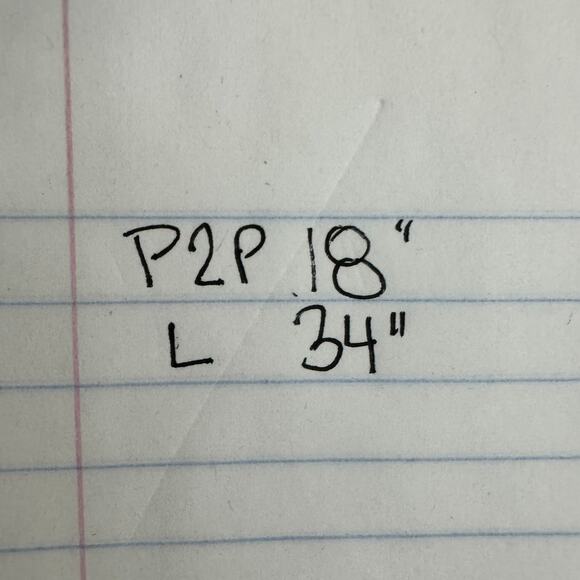 P2P 18"
L 34"